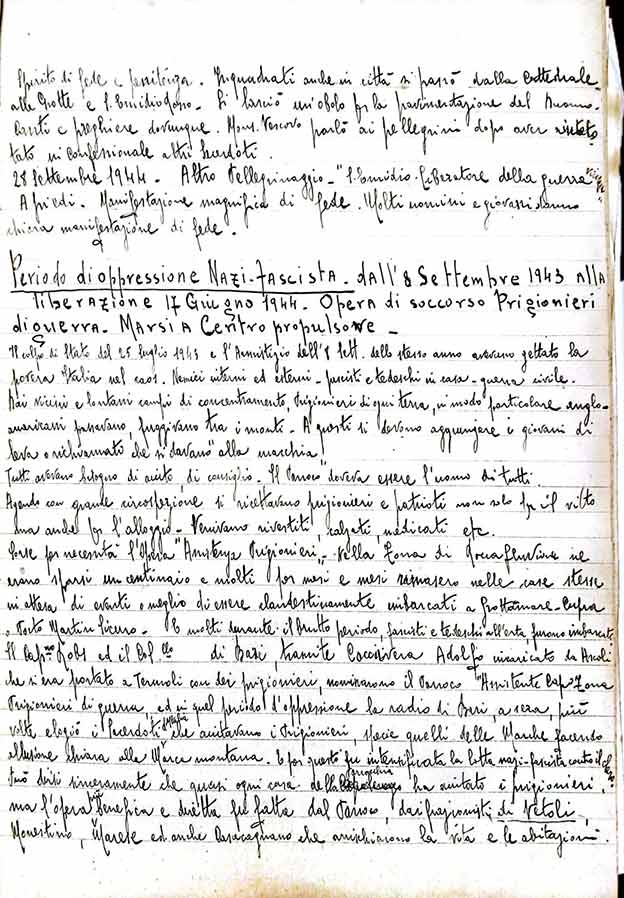 spirito di fede e penitenza. Inquadrati anche in città si passò dalla Cattedrale
alle Grotte e S. Emidio Rosso. Si lasciò un'obolo per la pavimentazione del Duomo.
Canti e preghiere dovunque. Mons. Vescovo parlò ai pellegrini dopo aver aiutato
tato in confessionale altri Sacerdoti.
28 Settembre 1944. Altro Pellegrinaggio - "S. Emidio Liberatore della guerra"
A piedi. Manifestazione magnifica di fede. Molti uomini e giovani
chiara manifestazione di fede.
Periodo di oppressione Nazi-fascista - dall'8 Settembre 1943 alla
liberazione 17 Giugno 1944. Opera di soccorso Prigionieri
di guerra. Marsia Centro propulsore -
Il colpo di Stato del 25 Luglio 1943 e l'Armistizio dell'8 Sett. dello stesso anno avevano gettato la
povera Italia nel caos. Nemici interni ed esterni - fascisti e tedeschi in casa - guerra civile.
Dai vicini e lontani campi di concentramento, Prigionieri di ogni terra, in modo particolare anglo-
americani passavano, fuggivano tra i monti - A questi si devono aggiungere i giovani di
leva o richiamati che si davano "alla macchia"
Tutti avevano bisogno di aiuto di consiglio. Il Parroco doveva essere l'uomo di tutti.
Agendo con grande circospezione si ricettavano prigionieri e patrioti non solo per il vitto
ma anche per l'alloggio - Venivano rivestiti, calzati, medicati etc.
Sorse per necessità l'Opera "Assistenza Prigionieri". Nella Zona di Roccafluvione ne
erano sparsi un centinaio e molti per mesi e mesi rimasero nelle case stesse
in attesa di eventi o meglio di essere clandestinamente imbarcati a Grottammare - Cupra
o Porto Martin Sicuro - E molti durante il brutto periodo, fascisti e tedeschi all'erta, furono imbarcati
Il Cap.no ed il Col.llo di Bari, tramite Coccivera Adolfo incaricato da Ascoli
che si era portato a Termoli con dei prigionieri, nominarono il Parroco "Assistente Capo Zona
Prigionieri di guerra, ed in quel periodo d'oppressione la radio di Bari, a sera, più
volte elogiò i Sacerdoti d'Italia che aiutavano i Prigionieri, specie quelli delle Marche facendo
allusione chiara alla Marca montana. E per questo fu intensificata la lotta nazi-fascista contro il clero
Può dirsi sinceramente che quasi ogni casa della Parrocchia ha aiutato i prigionieri,
ma l'opera Benefica e diretta fu fatta dal Parroco, dai frazionisti di Vetoli,
Monestino, Marese ed anche Casacagnano che arrischiarono la vita e le abitazioni.